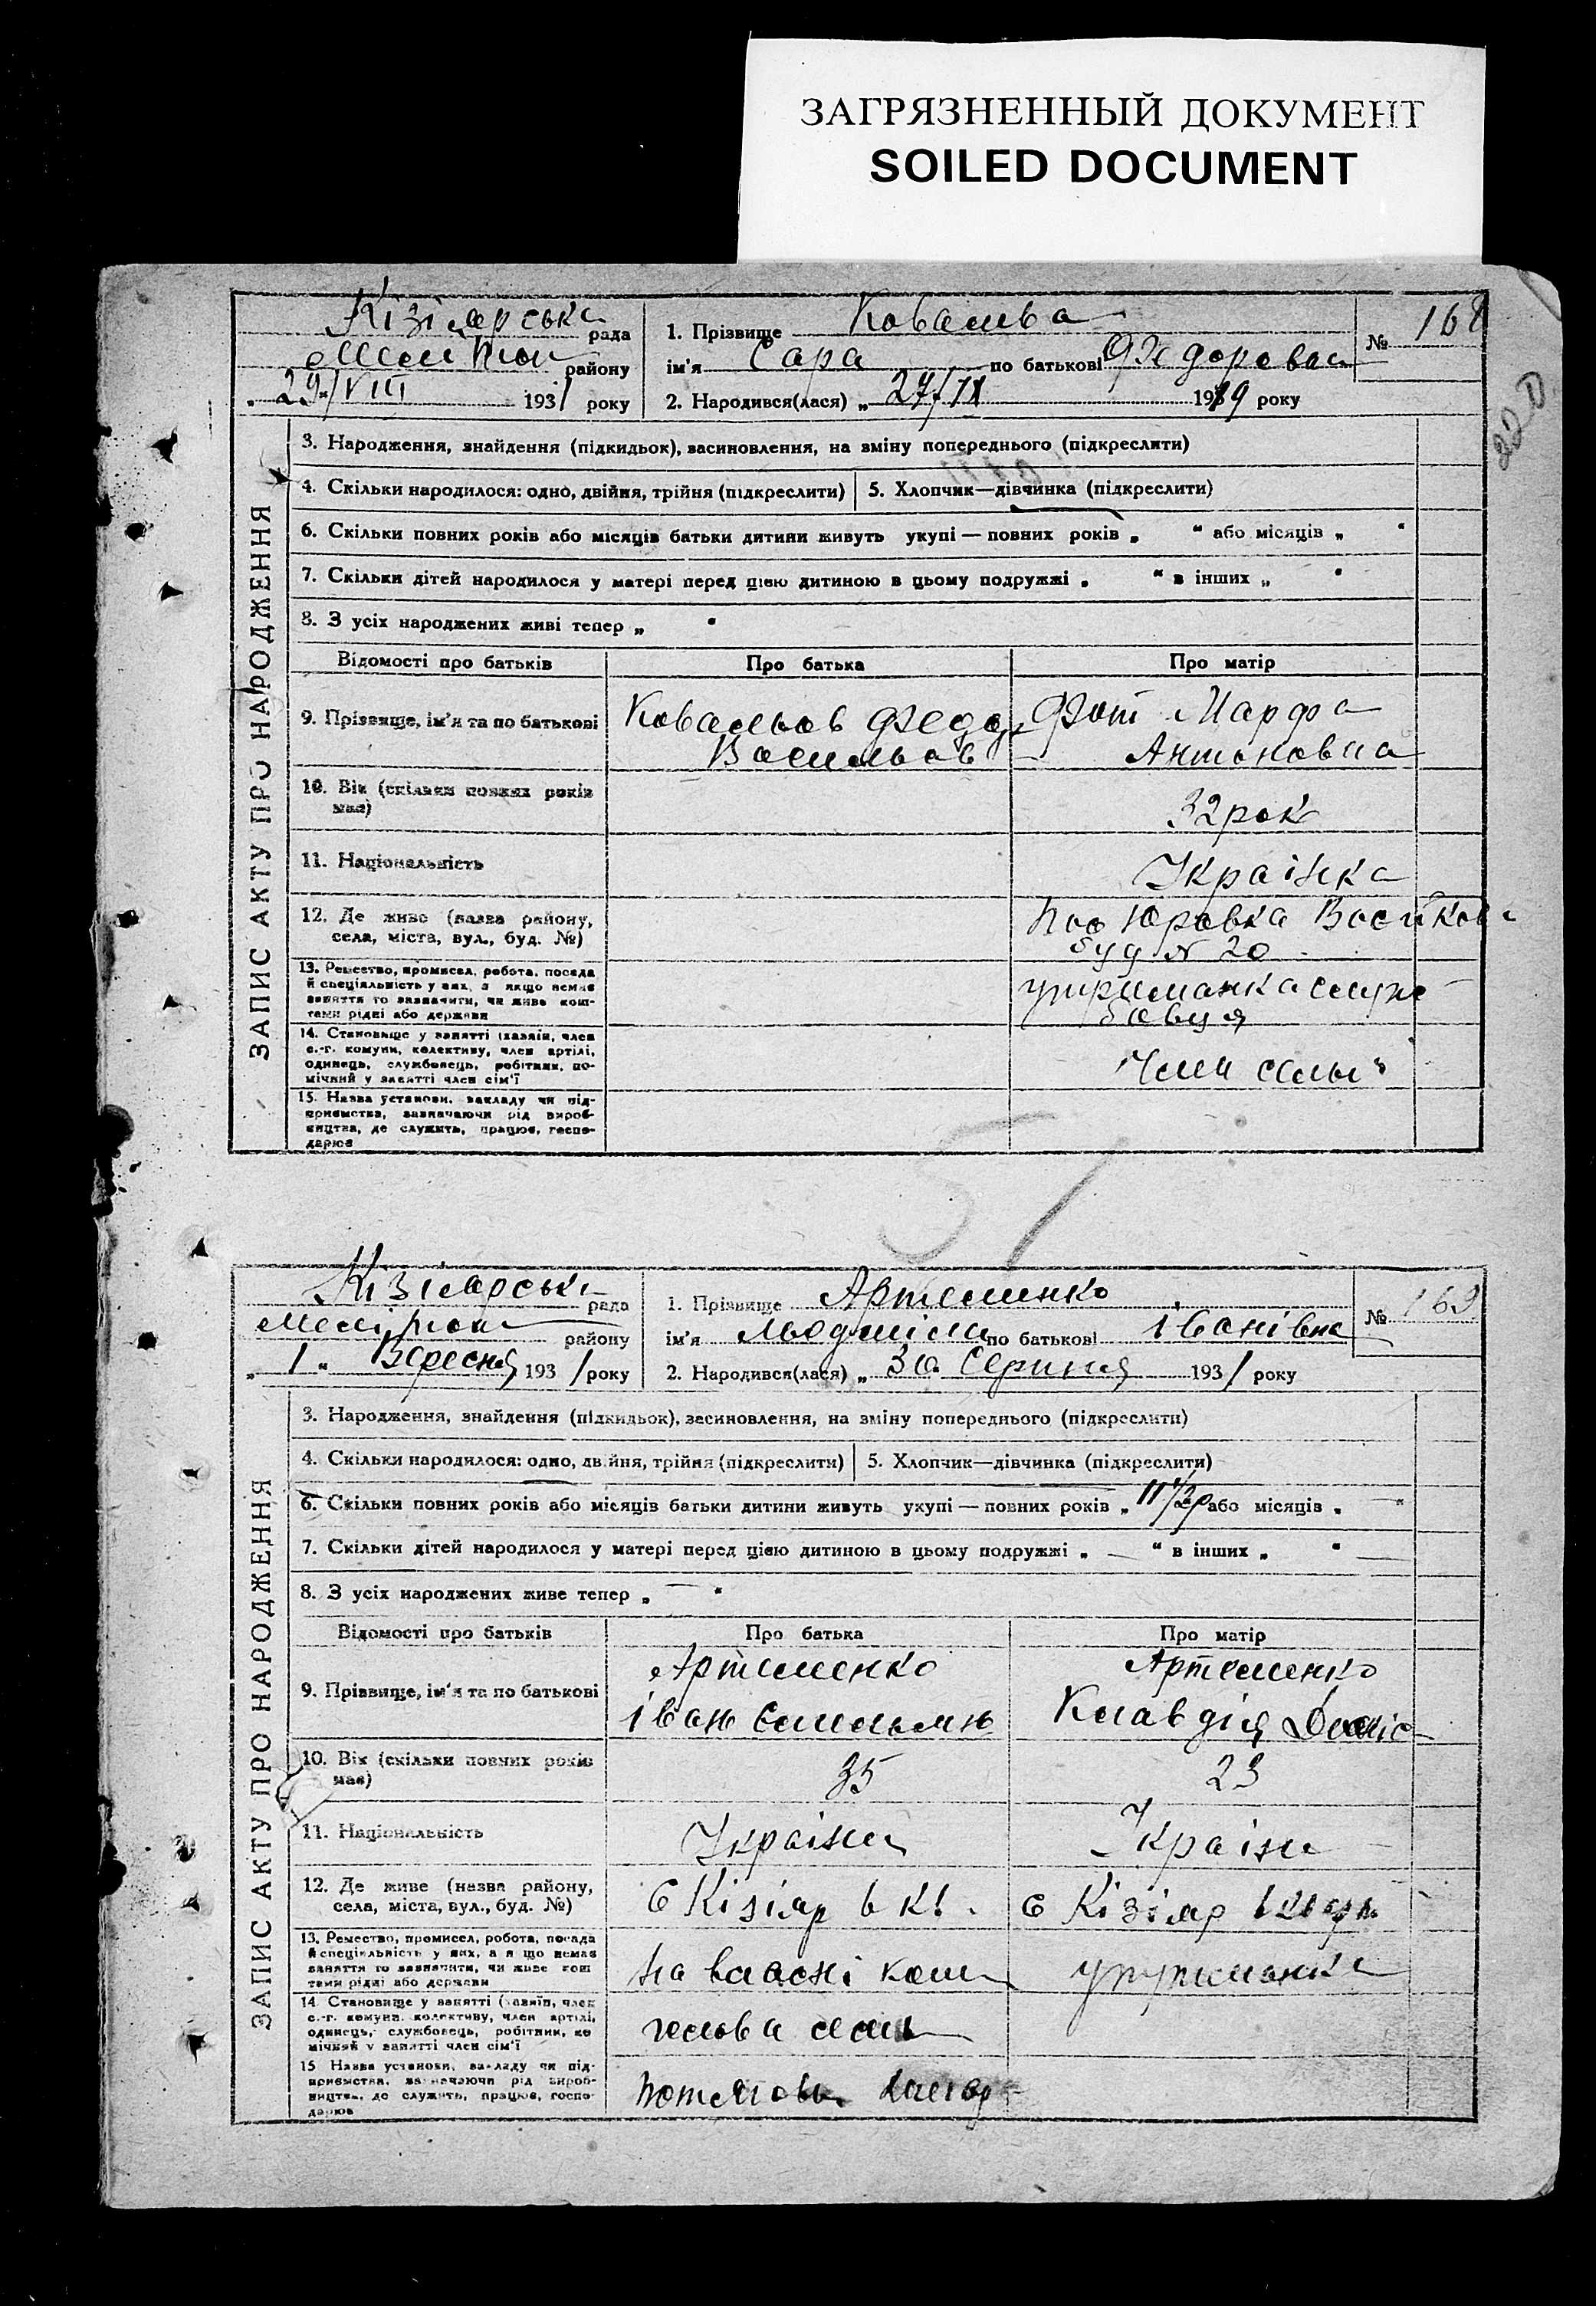 ЗАГРЯЗНЕННЫЙ ДОКУМЕНТ
SOILED DOCUMENT
Кізіярська рада
району
29/VIII 1931 року
1. Прізвище Ковальва
ім'я Сара по батькові Федоровна
2. Народився(лася) „ 1919 року
№ 168
220
ЗАПИС АКТУ ПРО НАРОДЖЕННЯ
3. Народження, знайдення (підкидьок), всиновлення, на зміну попереднього (підкреслити)
4. Скільки народилося: одно, двійня, трійня (підкреслити) 5. Хлопчик—дівчинка (підкреслити)
6. Скільки повних років або місяців батьки дитини живуть укупі — повних років „ “ або місяців „ “
7. Скільки дітей народилося у матері перед цією дитиною в цьому подружжі „ “ в інших „ “
8. З усіх народжених живі тепер „ “
Відомості про батьків Про батька Про матір
9. Прізвище, ім'я та по батькові Ковальов Федор Фот Марфа
Васильов Антоновна
10. Вік (скільки повних років
має) 32 рок
11. Національність Українка
12. Де живе (назва району,
села, міста, вул., буд. №) Юровка
буд № 20
13. Ремество, промисел, робота, посада
й спеціяльність у них, а якщо немає
заняття то зазначити, чи живе кош-
тами рідні або держави
утриманка служ
бовця
14. Становище у занятті (хазяїн, член
с.-г. комуни, колективу, член артілі,
одинець, службовець, робітник, по-
мічний у занятті член сім'ї
член
15. Назва установи, закладу чи під-
приємства, зазначаючи рід вироб-
ництва, де служить, працює, госпо-
дарює
51
Кізіярська рада
району
„ 1 „ Вересня 1931 року
1. Прізвище Артеменко
ім'я Людміла по батькові Іванівна
2. Народився(лася) „ 30 Серпня 1931 року
№ 169
ЗАПИС АКТУ ПРО НАРОДЖЕННЯ
3. Народження, знайдення (підкидьок), всиновлення, на зміну попереднього (підкреслити)
4. Скільки народилося: одно, двійня, трійня (підкреслити) 5. Хлопчик—дівчинка (підкреслити)
6. Скільки повних років або місяців батьки дитини живуть укупі — повних років „ або місяців „ — “
7. Скільки дітей народилося у матері перед цією дитиною в цьому подружжі „ — “ в інших „ “ —
8. З усіх народжених живе тепер „ — “
Відомості про батьків Про батька Про матір
Артеменко Артеменко
9. Прізвище, ім'я та по батькові
Іван Клавдія
10. Вік (скільки повних років
має) 35 23
11. Національність Україн Україн
12. Де живе (назва району,
села, міста, вул., буд. №) с Кізіяр с Кізіяр
13. Ремество, промисел, робота, посада
й спеціяльність у них, а якщо немає
заняття то зазначити, чи живе кош
тами рідні або держави
на власні кош утриманка
14. Становище у занятті (хазяїн, член
с.-г. комуни, колективу, член артілі,
одинець, службовець, робітник, по
мічний у занятті член сім'ї
голова
15. Назва установи, закладу чи під-
приємства, зазначаючи рід вироб-
ництва, де служить, працює, госпо-
дарює